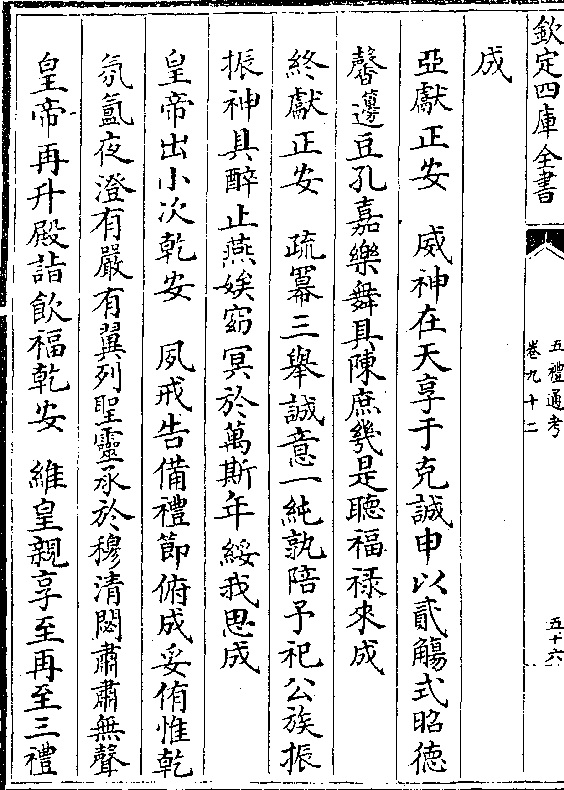 欽定四庫全書
五禮通考
卷九十二
五十六
成
亞獻正安　威神在天享于克誠申以貳觴式昭德
馨籩豆孔嘉樂舞具陳庶幾是聽福祿來成
終獻正安　疏冪三舉誠意一純孰陪予祀公族振
振神具醉止燕娭窈冥於萬斯年綏我思成
皇帝出小次乾安　夙戒告備禮節俯成妥侑惟乾
氛氳夜澄有嚴有翼列聖靈承於穆清閟肅肅無聲
皇帝再升殿詣飲福乾安　維皇親享至再至三禮